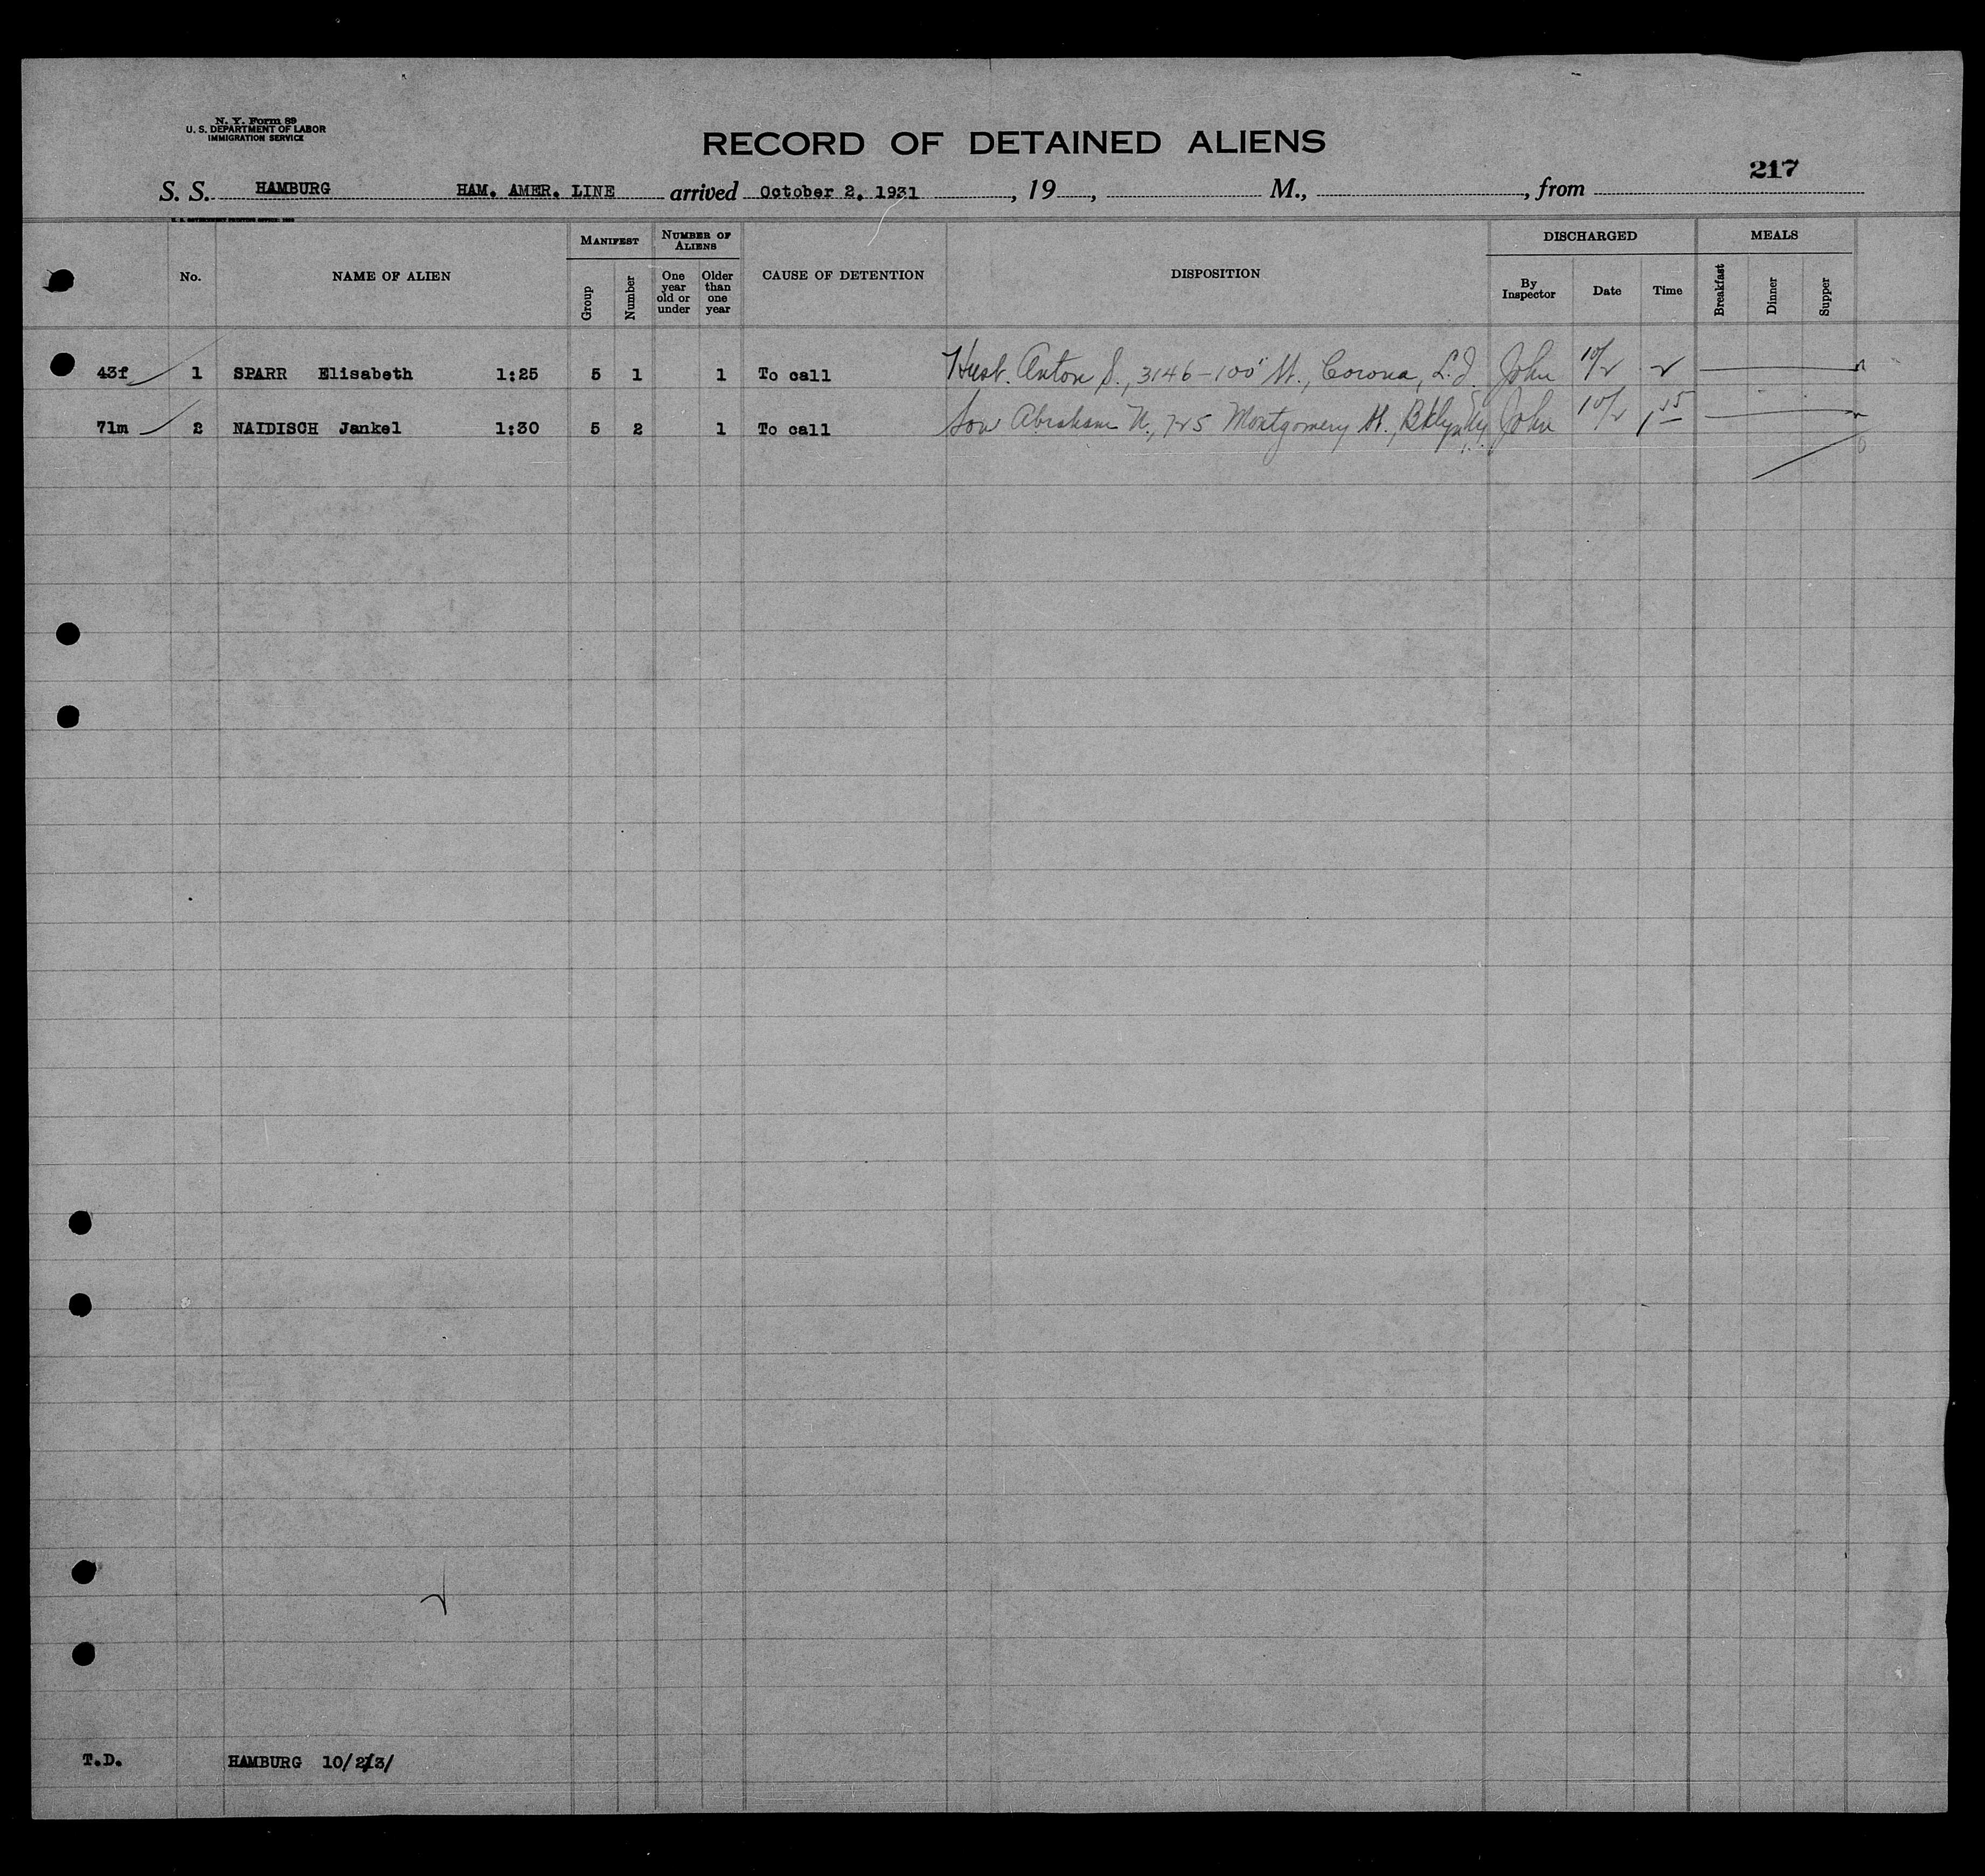 N. Y. Form 89
U. S. DEPARTMENT OF LABOR
IMMIGRATION SERVICE
RECORD OF DETAINED ALIENS
217
S. S. HAMBURG HAM. AMER. LINE arrived October 2, 1931, 19, M., , from
MANIFEST NUMBER OF ALIENS DISCHARGED MEALS
No. NAME OF ALIEN Group Number One year old or under Older than one year CAUSE OF DETENTION DISPOSITION By Inspector Date Time Breakfast Dinner Supper
43f 1 SPARR Elisabeth 1:25 5 1 1 To call Husb. Anton S., 3146-100" St., Corona, L.I. John 10/2 2
71m 2 NAIDISCH Jankel 1:30 5 2 1 To call Son Abraham N., 725 Montgomery St., Bklyn, NY John 10/2 1 55
T.D. HAMBURG 10/2/3/